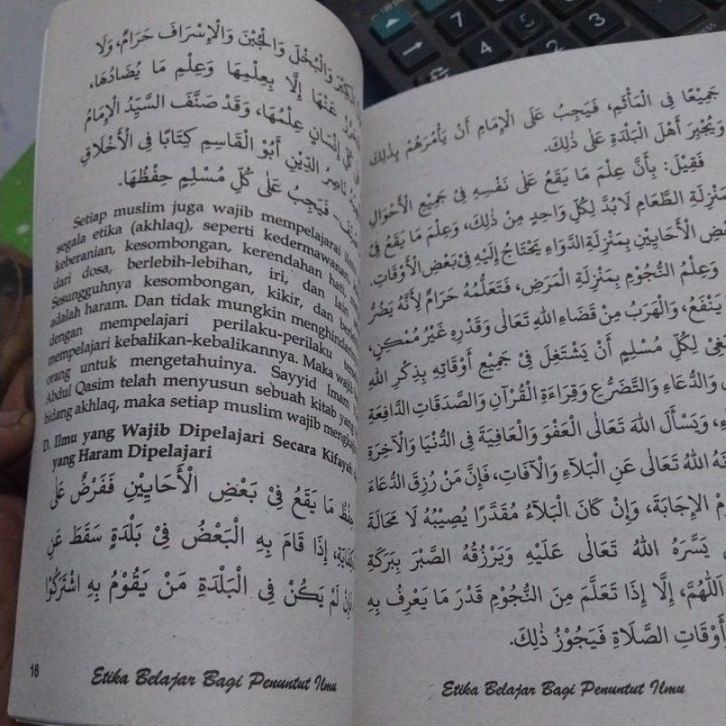 وَالْبُخْلَ وَالْجُبْنَ وَالْإِسْرَافَ حَرَامٌ، وَلَا
عَنْهَا إِلَّا بِعِلْمِهَا وَعِلْمِ مَا يُضَادُهَا،
إِنْسَانٍ عِلْمُهَا، وَقَدْ صَنَّفَ السَّيِّدُ الْإِمَامُ
نَاصِرُ الدِّيْنِ أَبُو الْقَاسِمِ كِتَابًا فِى الْأَخْلَاقِ
فَيَجِبُ عَلَى كُلِّ مُسْلِمٍ حِفْظُهَا.
Setiap muslim juga wajib mempelajarai
segala etika (akhlaq), seperti kedermawanan
keberanian, kesombongan, kerendahan hati,
dari dosa, berlebih-lebihan, iri, dan lain
Sesungguhnya kesombongan, kikir, dan
adalah haram. Dan tidak mungkin menghindari
dengan mempelajari perilaku-perilaku
mempelajari kebalikan-kebalikannya. Maka wajib
orang untuk mengetahuinya. Sayyid Imam
Abdul Qasim telah menyusun sebuah kitab yang
bidang akhlaq, maka setiap muslim wajib
D. Ilmu yang Wajib Dipelajari Secara Kifayah
yang Haram Dipelajari
حِفْظُ مَا يَقَعُ فِيْ بَعْضِ الْأَحَايِيْنِ فَفَرْضٌ عَلَى
إِذَا قَامَ بِهِ الْبَعْضُ فِيْ بَلْدَةٍ سَقَطَ عَنِ
لَمْ يَكُنْ فِى الْبَلْدَةِ مَنْ يَقُوْمُ بِهِ اشْتَرَكُوْا
16 Etika Belajar Bagi Penuntut Ilmu
جَمِيْعًا فِى الْمَأْثَمِ، فَيَجِبُ عَلَى الْإِمَامِ أَنْ يَأْمُرَهُمْ بِذٰلِكَ
وَيُجْبِرَ أَهْلَ الْبَلْدَةِ عَلَى ذٰلِكَ.
فَقِيْلَ: بِأَنَّ عِلْمَ مَا يَقَعُ عَلَى نَفْسِهِ فِيْ جَمِيْعِ الْأَحْوَالِ
بِمَنْزِلَةِ الطَّعَامِ لَابُدَّ لِكُلِّ وَاحِدٍ مِنْ ذٰلِكَ، وَعِلْمَ مَا يَقَعُ فِيْ
بَعْضِ الْأَحَايِيْنِ بِمَنْزِلَةِ الدَّوَاءِ يَحْتَاجُ إِلَيْهِ فِيْ بَعْضِ الْأَوْقَاتِ.
وَعِلْمُ النُّجُوْمِ بِمَنْزِلَةِ الْمَرَضِ، فَتَعَلُّمُهُ حَرَامٌ لِأَنَّهُ يَضُرُّ
يَنْفَعُ، وَالْهَرَبُ مِنْ قَضَاءِ اللهِ تَعَالَى وَقَدَرِهِ غَيْرُ مُمْكِنٍ،
لِكُلِّ مُسْلِمٍ أَنْ يَشْتَغِلَ فِيْ جَمِيْعِ أَوْقَاتِهِ بِذِكْرِ اللهِ
وَالدُّعَاءِ وَالتَّضَرُّعِ وَقِرَاءَةِ الْقُرْآنِ وَالصَّدَقَاتِ الدَّافِعَةِ
وَيَسْأَلَ اللهَ تَعَالَى الْعَفْوَ وَالْعَافِيَةَ فِى الدُّنْيَا وَالْآخِرَةِ
اللهُ تَعَالَى عَنِ الْبَلَاءِ وَالْآفَاتِ، فَإِنَّ مَنْ رُزِقَ الدُّعَاءَ
الْإِجَابَةَ، وَإِنْ كَانَ الْبَلَاءُ مُقَدَّرًا يُصِيْبُهُ لَا مَحَالَةَ
يَسَّرَهُ اللهُ تَعَالَى عَلَيْهِ وَيَرْزُقُهُ الصَّبْرَ بِبَرَكَةِ
اَللّٰهُمَّ، إِلَّا إِذَا تَعَلَّمَ مِنَ النُّجُوْمِ قَدْرَ مَا يَعْرِفُ بِهِ
أَوْقَاتِ الصَّلَاةِ فَيَجُوْزُ ذٰلِكَ.
Etika Belajar Bagi Penuntut Ilmu
7
4
5
1
2
3